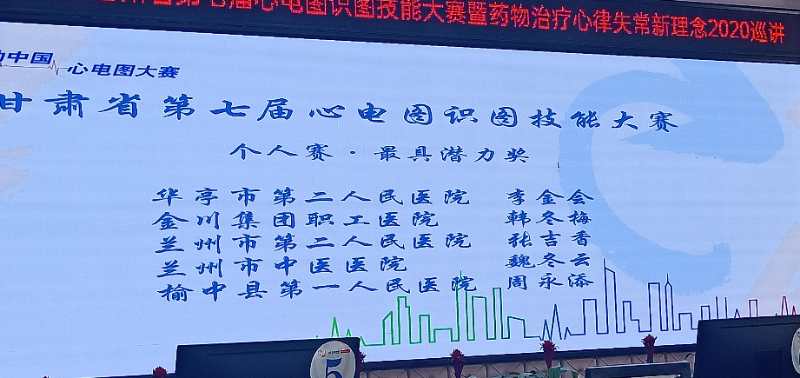 省第七届心电图识图技能大赛暨药物治疗心律失常新理念2020巡讲
动中国 心电图大赛
甘肃省第七届心电图识图技能大赛
个人赛·最具潜力奖
华亭市第二人民医院 李金会
金川集团职工医院 韩冬梅
兰州市第二人民医院 张吉香
兰州市中医医院 魏冬云
榆中县第一人民医院 周永添
5